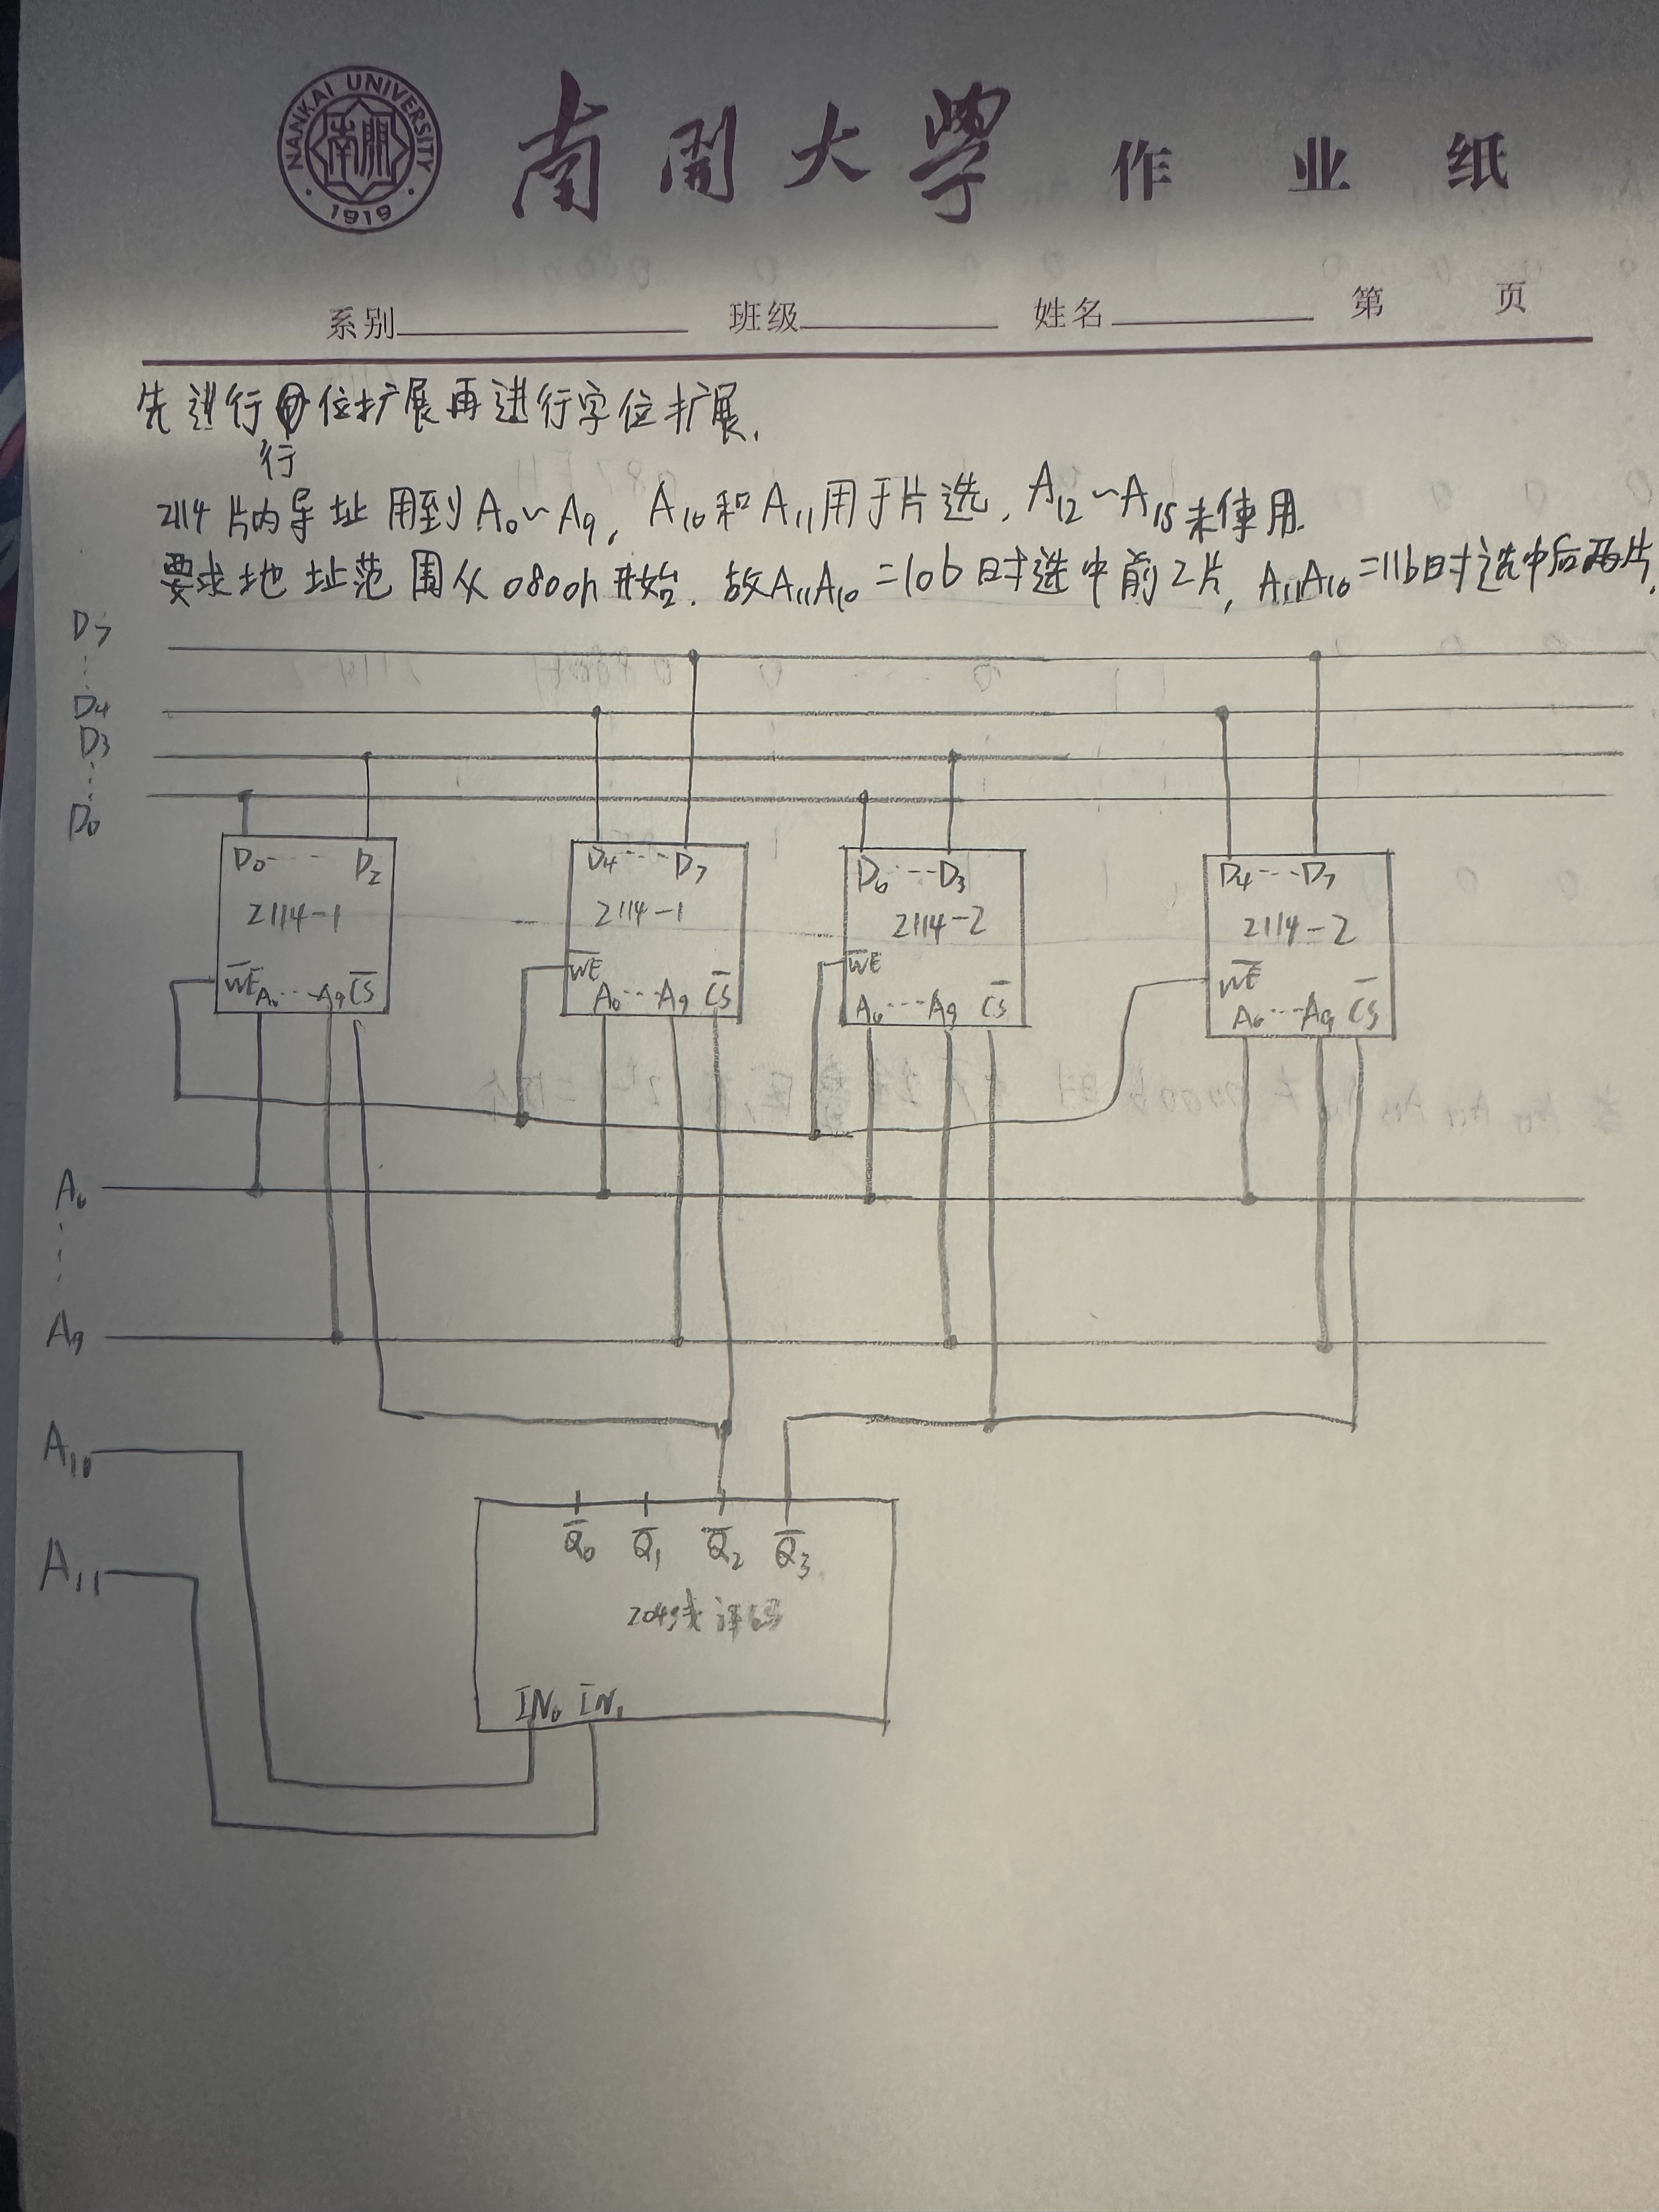 NANKAI UNIVERSITY
1919
南开大学 作业纸
系别 班级 姓名 第 页
先进行位扩展再进行字位扩展.
行
2114片内寻址用到A₀~A₉, A₁₀和A₁₁用于片选, A₁₂~A₁₅未使用.
要求地址范围从0800h开始. 故A₁₁A₁₀=10b时选中前2片, A₁₁A₁₀=11b时选中后两片.
D₇
D₄
D₃
D₀
D₀···D₂ D₄···D₇ D₀···D₃ D₄···D₇
2114-1 2114-1 2114-2 2114-2
W̅E̅ W̅E̅ W̅E̅ W̅E̅
A₀···A₉ C̅S̅ A₀···A₉ C̅S̅ A₀···A₉ C̅S̅ A₀···A₉ C̅S̅
A₀
A₉
A₁₀
A₁₁
Q̅₀ Q̅₁ Q̅₂ Q̅₃
2o4线译码
IN₀ IN₁